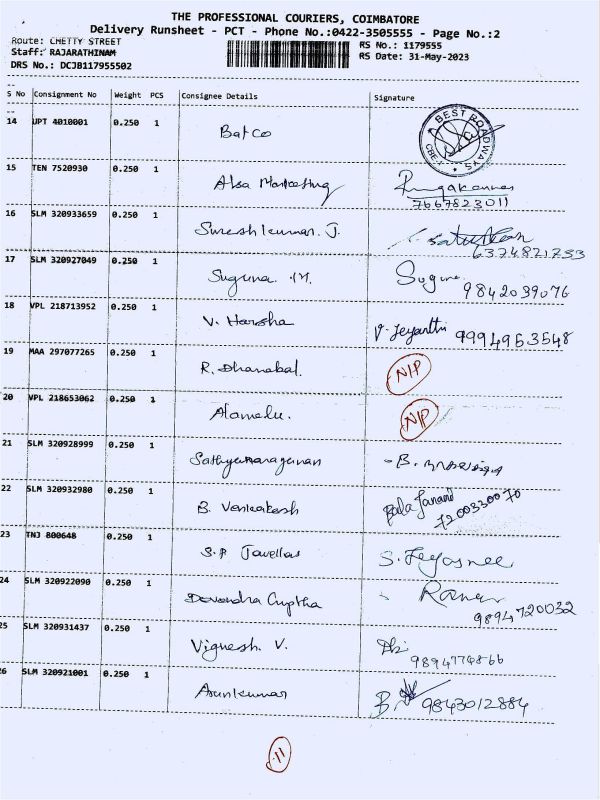 THE PROFESSIONAL COURIERS, COIMBATORE
Delivery Runsheet - PCT - Phone No.:0422-3505555 - Page No.:2
Route: CHETTY STREET RS No.: 1179555
Staff: RAJARATHINAM RS Date: 31-May-2023
DRS No.: DCJB117955502
S No Consignment No Weight PCS Consignee Details Signature
14 UPT 4010001 0.250 1 Batco BEST ROADWAYS CBE
15 TEN 7520930 0.250 1 Alsa Marketing
7667823011
16 SLM 320933659 0.250 1 Sureshkumar. J.
6374821733
17 SLM 320927049 0.250 1 Suguna. M. Suguna
9842039076
18 VPL 218713952 0.250 1 V. Harsha V. Jeyanthi 9994963548
19 MAA 297077265 0.250 1 R. Dhanabal. N/P
20 VPL 218653062 0.250 1 Alamelu. N/P
21 SLM 320928999 0.250 1 Sathyanarayanan
22 SLM 320932980 0.250 1 B. Venkatesh
7200330070
23 TNJ 800648 0.250 1 S.P Javellas S. Jeyasree
24 SLM 320922090 0.250 1 Devendra Guptha
9894720032
25 SLM 320931437 0.250 1 Vignesh. V.
9894774866
26 SLM 320921001 0.250 1 Arunkumar 9843012884
11